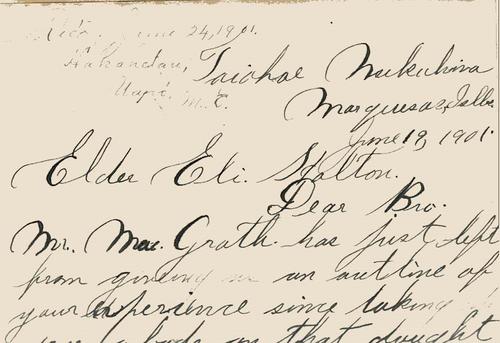 June 24, 1901.
Hakandau,
Uapu, M. I.
Taiohae Nukuhiva
Marquesas, Islls.
June 19, 1901.
Elder Eli. Halton.
Dear Bro.
Mr. Mac. Grath has just left
from giving an outline of
your experience since taking
on that